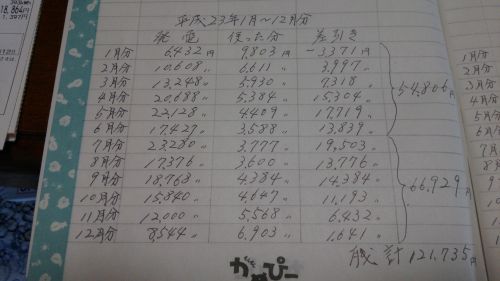 18,864円
平成23年1月~12月分
発電 使った分 差引き
1月分 6432円 9,803円 -3371円
2月分 10,608〃 6,611〃 3,997〃
3月分 13,248〃 5,930〃 7,318〃
4月分 20,688〃 5,384〃 15,304〃
5月分 22,128〃 4,409〃 17,719〃
6月分 17,427〃 3,588〃 13,839〃
54,806円
7月分 23,280〃 3,777〃 19,503〃
8月分 17,376〃 3,600〃 13,776〃
9月分 18,768〃 4,384〃 14,384〃
10月分 15,840〃 4,647〃 11,193〃
11月分 12,000〃 5,568〃 6,432〃
12月分 8,544〃 6,903〃 1,641〃
66,929円
計 121,735円
1月分
2月分
3月分
4月分